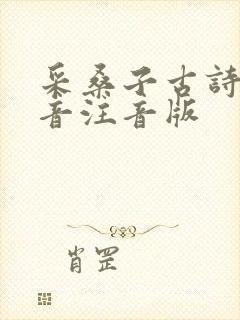 采桑子古詩
音注音版
肖罡